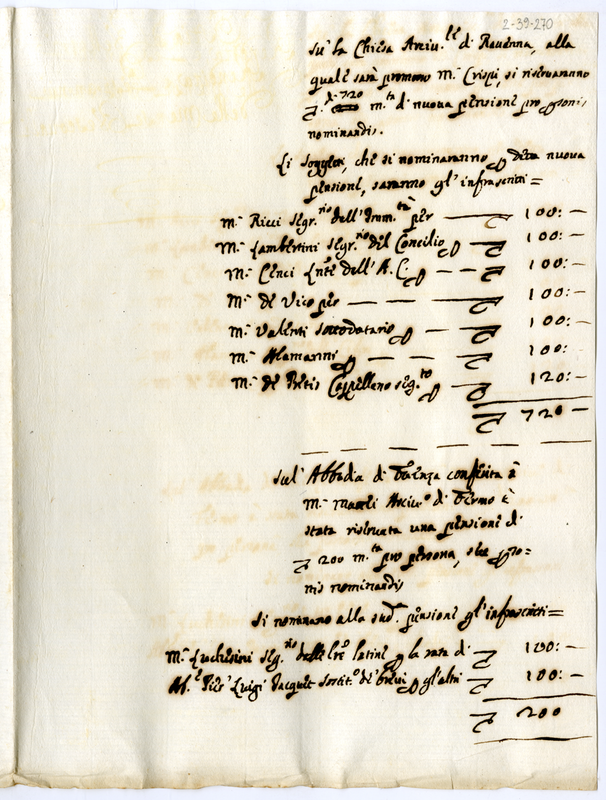 2-39-270
Su' la Chiesa Arciv.le di Rauenna, alla
quale sarà promosso M.r Crispi, si riserueranno
720 m.ta di nuoua pensione pro personis
nominandis.
Li soggetti, che si nominaranno p detta nuoua
pensione, saranno gl' infrascritti =
M.r Ricci Segr.rio dell' Imm.tà per — 100: —
M.r Lambertini Segr.rio del Concilio p — 100: —
M.r Cenci Lnte dell' A. C. p — 100: —
M.r de Vico per — 100: —
M.r Valenti Sottodatario p — 100: —
M.r Alamanni p — 100: —
M.r de Pretis Cappellano seg.to p — 120: —
720 —
Sul' Abbadia di conferita à
M.r Mattei Arciu.o di Fermo è
stata riseruata una pensione di
200 m.ta pro persona, siue perso=
nis nominandis
Si nominano alla sud.a pensione gl' infrascritti =
M.r Seg.rio delle lre latine p la rata di 100: —
Pier' Luigi Sostit.o de' breui p gl'altri 100: —
200